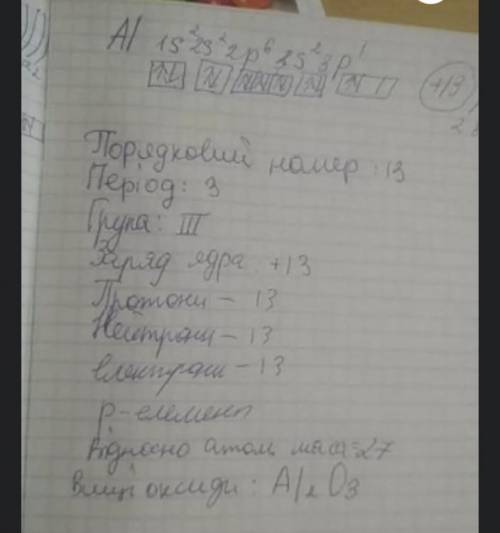 Al 1s²2s²2p⁶3s²3p¹
+13
Порядковий номер: 13
Період: 3
Група: III
Заряд ядра: +13
Протони - 13
Нейтрони - 13
електрони - 13
р-елемент
Відносно атом. маса=27
Вищі оксиди: Al₂O₃